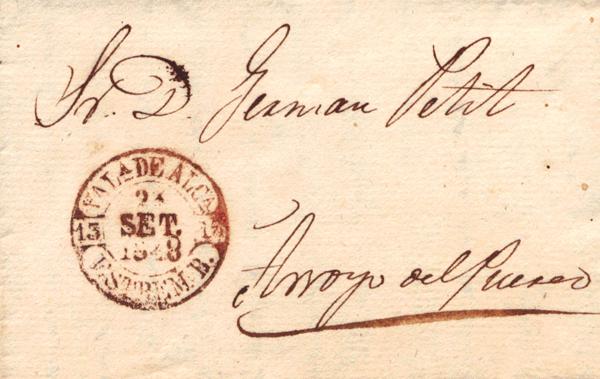 Sr. D. German Petit
VALA DE ALCA
SET.
1848
15
ESTREM. B.
Arroyo del Puerco